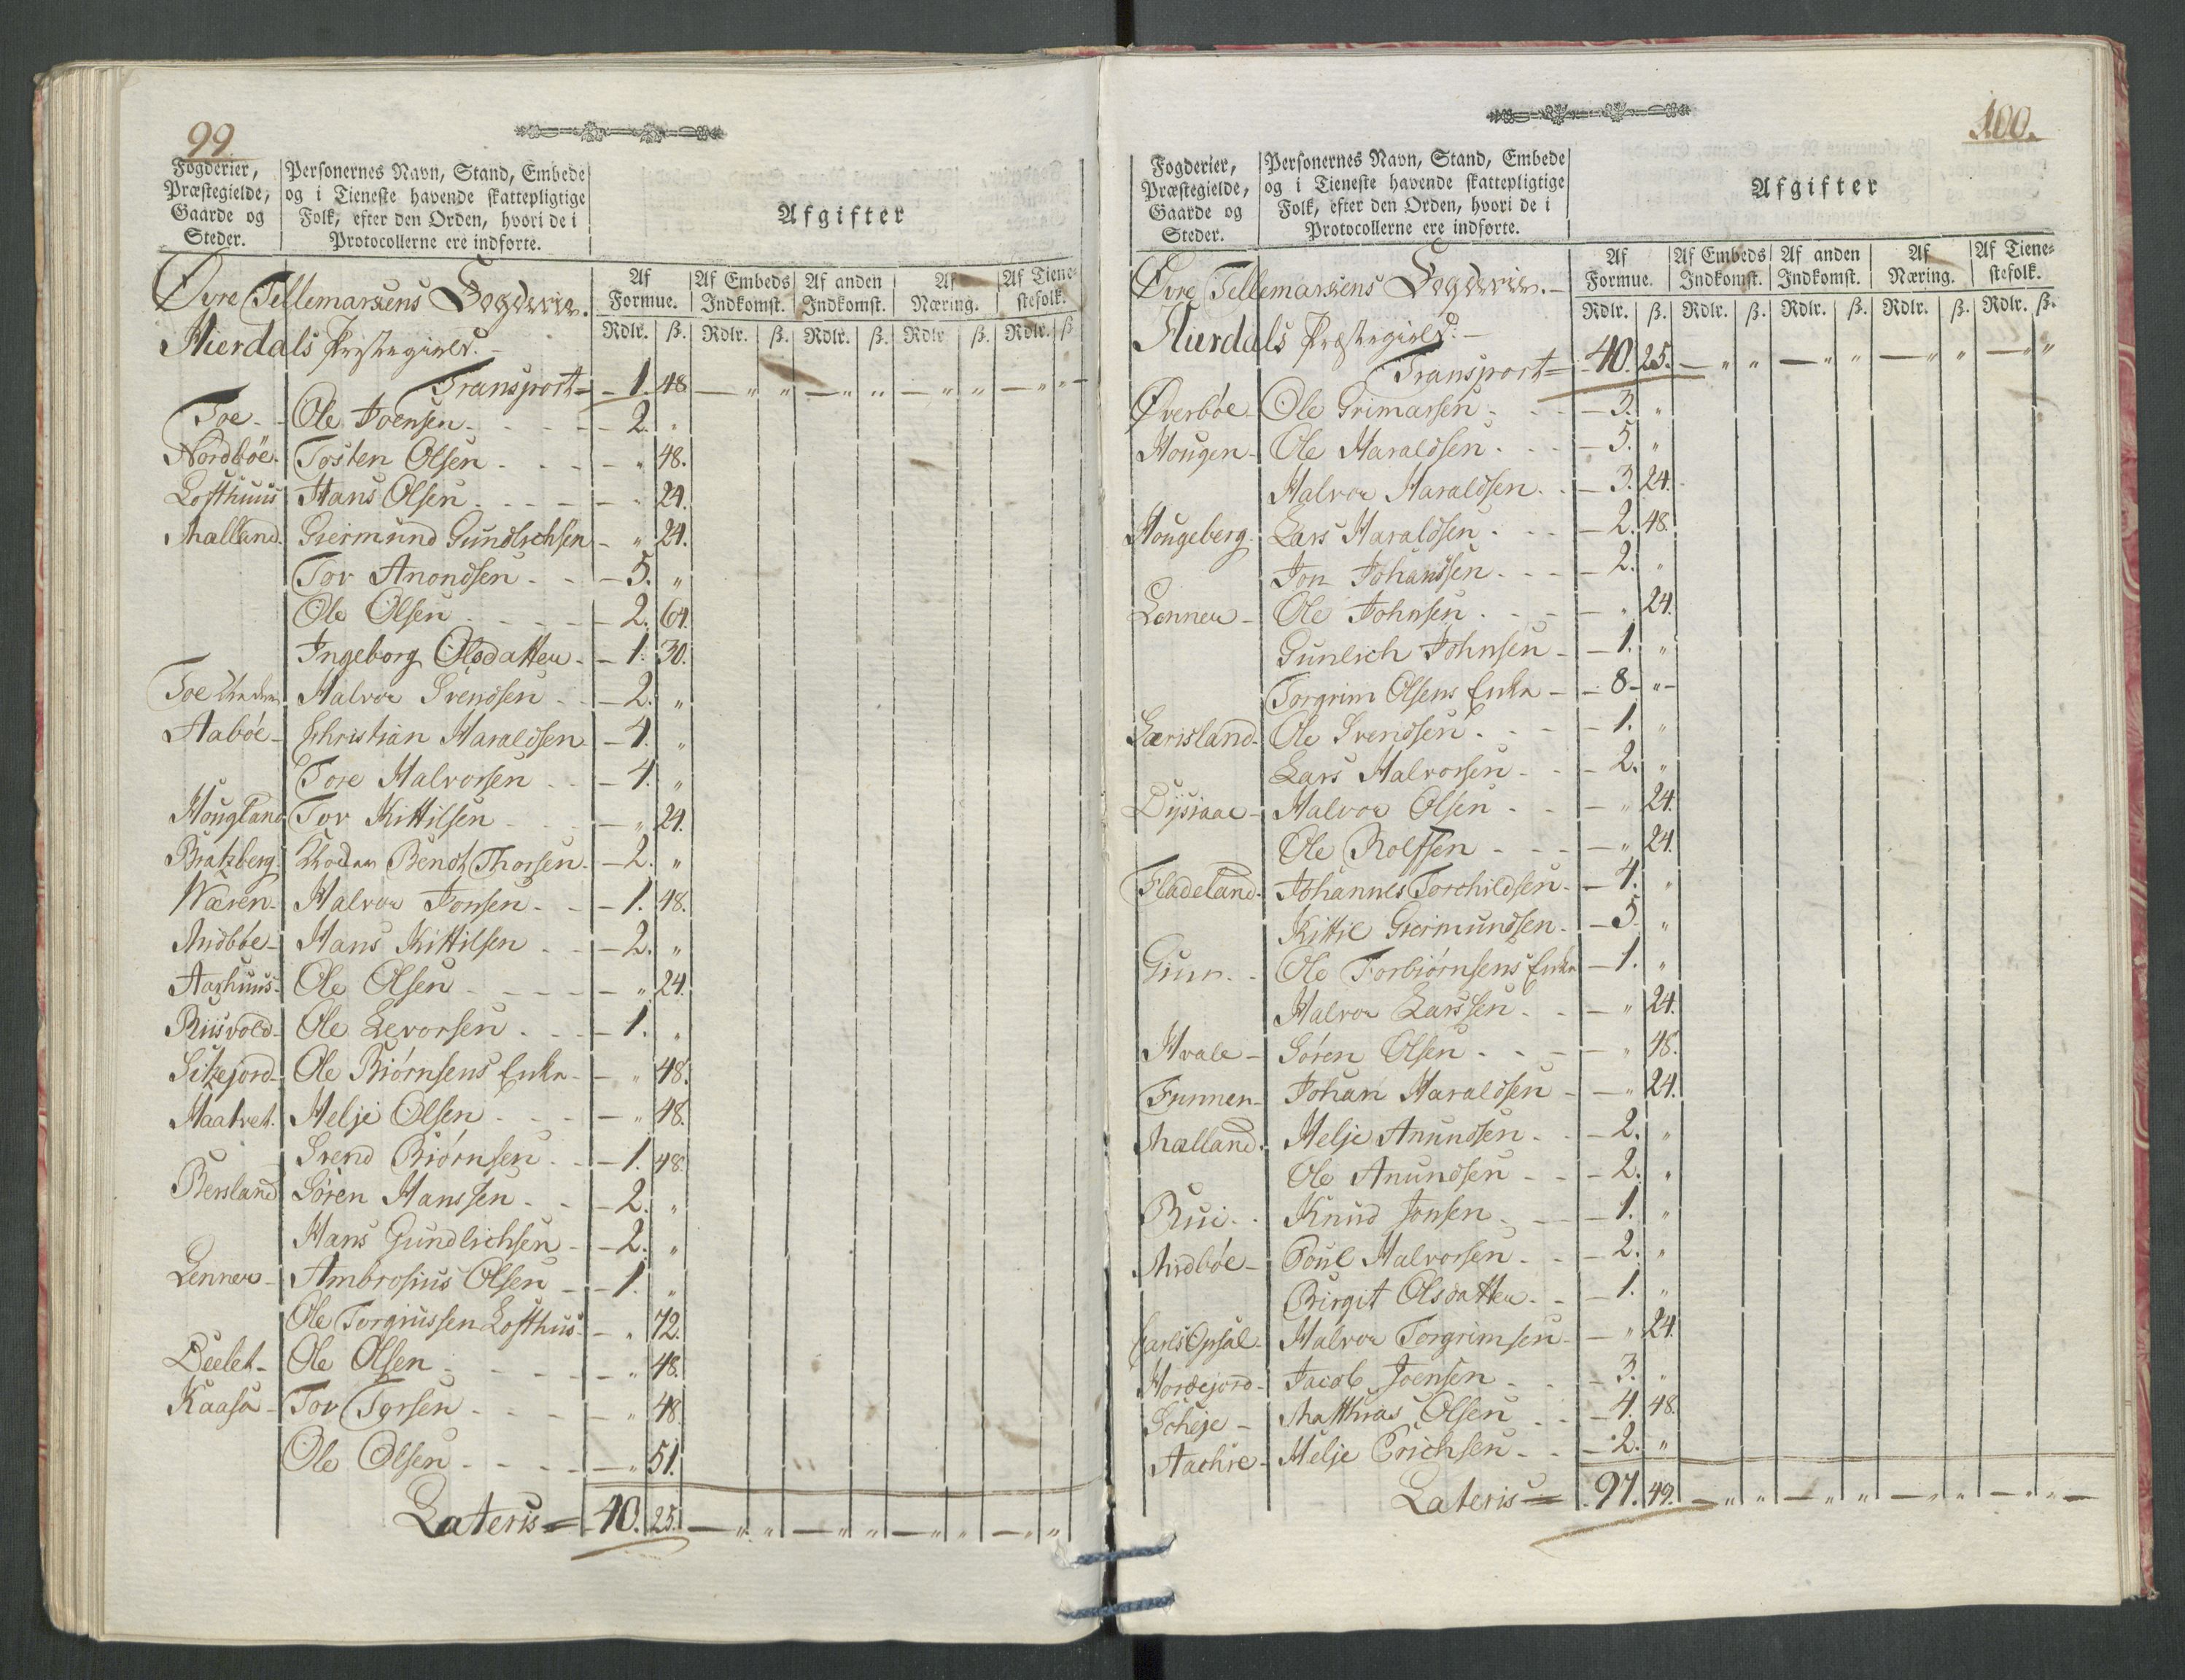 99.
Fogderier, Præstegielde, Gaarde og Steder.
Personernes Navn, Stand, Embede og i Tieneste havende skattepligtige Folk, efter den Orden, hvori de i Protocollerne ere indførte.
Afgifter
Øvre Tellemarkens Fogderie.
Af Formue. Af Embeds Indkomst. Af anden Indkomst. Af Næring. Af Tienestefolk.
Rdlr. ß. Rdlr. ß. Rdlr. ß. Rdlr ß. Rdlr. ß
Hierdals Præstegield. -
Transport = - 1. 48 — " " — " " — " " — " " —
Toe - - Ole Joensen - - - - 2. "
Nordbøe. Tosten Olsen - - - - " 48.
Lofthuus Hans Olsen - - - - " 24.
Malland. Giermund Gundlichsen - " 24.
Tov Anondsen - - - 5. "
Ole Olsen - - - - 2. 64.
Ingeborg Olsdatter - - 1. 30.
Toe Halvor Svendsen - - 2. "
Aabøe - Christian Haraldsen - 4. "
Tore Halvorsen - - - 4. "
Hougland Tov Kittilsen - - - " 24.
Bratzberg Bendt Thorsen - 2. "
Næren - Halvor Jonsen - - - 1. 48.
Midbøe - Hans Kittilsen - - - 2. "
Aashuus - Ole Olsen - - - - " 24.
Riisvold - Ole Levorsen - - - 1. "
Sitzejord - Ole Biørnsens Enke - - " 48.
Haatvet. Helje Olsen - - - - " 48.
Svend Biørnsen - - - 1. 48.
Bersland Søren Hanssen - - - 2. "
Hans Gundlichsen - - 2. "
Lenner - Ambrosius Olsen - - 1. "
Ole Torgiussen Lofthus - " 72.
Deelet - Ole Olsen - - - - " 48.
Kaasa - Tov Torsen - - - - " 48.
Ole Olsen - - - - " 51.
Lateris = 40. 25. — " " — " " — " " — " "
100.
Fogderier, Præstegielde, Gaarde og Steder.
Personernes Navn, Stand, Embede og i Tieneste havende skattepligtige Folk, efter den Orden, hvori de i Protocollerne ere indførte.
Afgifter
Øvre Tellemarkens Fogderie. -
Af Formue. Af Embeds Indkomst. Af anden Indkomst. Af Næring. Af Tienestefolk.
Rdlr. ß. Rdlr. ß. Rdlr. ß. Rdlr. ß. Rdlr. ß.
Hierdals Præstegield. -
Transport = - 40. 25. — " " — " " — " " — " "
Øverbøe - Ole Grimarsen - - - 3. "
Hougen - Ole Haraldsen - - - 5. "
Halvor Haraldsen - - 3. 24.
Hougeberg. Lars Haraldsen - - - 2. 48.
Jon Johandsen - - - 2. "
Lenner - Ole Johnsen - - - - " 24.
Gunlich Johnsen - - 1. "
Torgrim Olsens Enke - - 8 - " -
Særisland - Ole Svendsen - - - 1. "
Lars Halvorsen - - - 2. "
Dysiaae - Halvor Olsen - - - " 24.
Ole Rolfsen - - - - " 24.
Fladeland - Johannes Torchildsen - - 4. "
Kittil Giermundsen - - 5. "
Giun - - Ole Torbiørnsens Enke - 1. "
Halvor Larssen - - - " 24.
Hvale - Søren Olsen - - - - " 48.
Funnen - Johan Haraldsen - - " 24.
Malland. Helje Anundsen - - - 2. "
Ole Anundsen - - - 2. "
Rui - - Knud Jonsen - - - 1. "
Midbøe - Poul Halvorsen - - - 2. "
Birgit Olsdatter - - - 1. "
Carls Opsal - Halvor Torgrimsen - - " 24.
Hordejord - Jacob Joensen - - - 3. "
Scheje - Matthias Olsen - - - 4. 48.
Aachre - Helje Erichsen - - - 2. "
Lateris = 97. 49. — " " — " " — " " — " " —